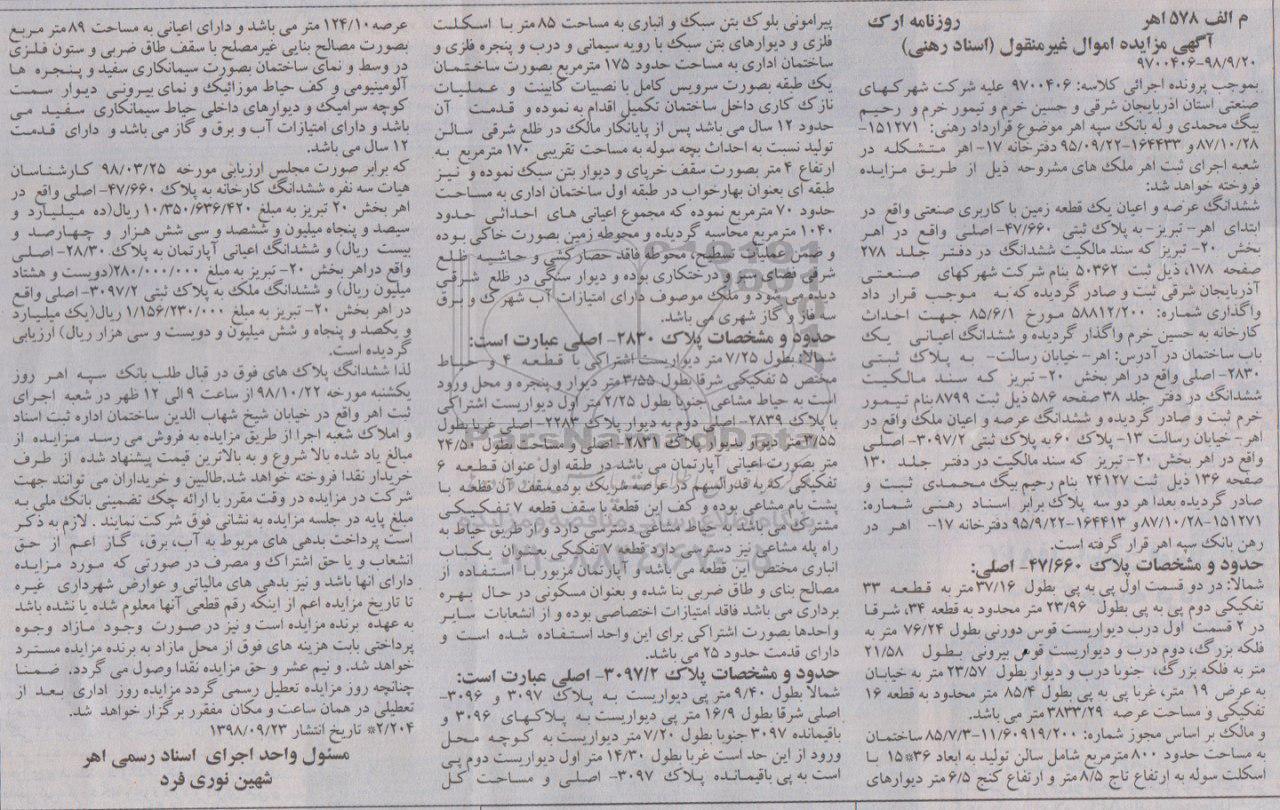 م الف ۵۷۸ اهر
روزنامه ارک
آگهی مزایده اموال غیرمنقول (اسناد رهنی)
۹۷۰۰۴۰۶-۹۸/۹/۲۰
بموجب پرونده اجرائی کلاسه: ۹۷۰۰۴۰۶ علیه شرکت شهرکهای
صنعتی استان اذربایجان شرقی و حسین خرم و تیمور خرم و رحیم
بیگ محمدی و له بانک سپه اهر موضوع قرارداد رهنی: ۱۵۱۲۷۱-
۸۷/۱۰/۲۸ و ۱۶۴۴۳۳-۹۵/۰۹/۲۲ دفترخانه ۱۷- اهر متشکله در
شعبه اجرای ثبت اهر ملک های مشروحه ذیل از طریق مزایده
فروخته خواهد شد:
ششدانگ عرصه و اعیان یک قطعه زمین با کاربری صنعتی واقع در
ابتدای اهر- تبریز- به پلاک ثبتی ۴۷/۶۶۰- اصلی واقع در اهر
بخش ۲۰- تبریز که سند مالکیت ششدانگ در دفتر جلد ۲۷۸
صفحه ۱۷۸، ذیل ثبت ۵۰۳۶۲ بنام شرکت شهرکهای صنعتی
آذربایجان شرقی ثبت و صادر گردیده که به موجب قرار داد
واگذاری شماره: ۵۸۸۱۲/۲۰۰ مورخ ۸۵/۶/۱ جهت احداث
کارخانه به حسین خرم واگذار گردیده و ششدانگ اعیانی یک
باب ساختمان در آدرس: اهر- خیابان رسالت- به پلاک ثبتی
۲۸۳۰- اصلی واقع در اهر بخش ۲۰- تبریز که سند مالکیت
ششدانگ در دفتر جلد ۳۸ صفحه ۵۸۶ ذیل ثبت ۸۷۹۹ بنام تیمور
خرم ثبت و صادر گردیده و ششدانگ عرصه و اعیان ملک واقع در
اهر- خیابان رسالت ۱۳- پلاک ۶۰ به پلاک ثبتی ۳۰۹۷/۲- اصلی
واقع در اهر بخش ۲۰- تبریز که سند مالکیت در دفتر جلد ۱۳۰
صفحه ۱۳۶ ذیل ثبت ۲۴۱۲۷ بنام رحیم بیگ محمدی ثبت و
صادر گردیده بعدا هر دو سه پلاک برابر اسناد رهنی شماره:
۱۵۱۲۷۱-۸۷/۱۰/۲۸ و ۱۶۴۴۱۳-۹۵/۹/۲۲ دفترخانه ۱۷- اهر در
رهن بانک سپه اهر قرار گرفته است.
حدود و مشخصات پلاک ۴۷/۶۶۰- اصلی:
شمالا: در دو قسمت اول پی به پی بطول ۳۷/۱۶ متر به قطعه ۳۳
تفکیکی دوم پی به پی بطول ۲۳/۹۶ متر محدود به قطعه ۳۴، شرقا
در ۲ قسمت اول درب دیواریست قوس دورنی بطول ۷۶/۲۴ متر به
فلکه بزرگ، دوم درب و دیواریست قوس بیرونی بطول ۲۱/۵۸
متر به فلکه بزرگ، جنوبا درب و دیوار بطول ۲۳/۵۷ متر به خیابان
به عرض ۱۹ متر، غربا پی به پی بطول ۸۵/۴ متر محدود به قطعه ۱۶
تفکیکی و مساحت عرصه ۳۸۳۳/۲۹ متر می باشد.
و مالک بر اساس مجوز شماره: ۱۱/۶۰۹۱۹/۲۰۰-۸۵/۷/۳ ساختمان
به مساحت حدود ۸۰۰ مترمربع شامل سالن تولید به ابعاد ۳۶*۱۵ با
اسکلت سوله به ارتفاع تاج ۸/۵ متر و ارتفاع کنج ۶/۵ متر دیوارهای
پیرامونی بلوک بتن سبک و انباری به مساحت ۸۵ متر با اسکلت
فلزی و دیوارهای بتن سبک با رویه سیمانی و درب و پنجره فلزی و
ساختمان اداری به مساحت حدود ۱۷۵ مترمربع بصورت ساختمان
یک طبقه بصورت سرویس کامل با نصبیات کابینت و عملیات
نازک کاری داخل ساختمان تکمیل اقدام به نموده و قدمت آن
حدود ۱۲ سال می باشد پس از پایانکار مالک در ظلع شرقی سالن
تولید نسبت به احداث بچه سوله به مساحت تقریبی ۱۷۰ مترمربع به
ارتفاع ۴ متر بصورت سقف خرپای و دیوار بتن سبک نموده و نیز
طبقه ای بعنوان بهارخواب در طبقه اول ساختمان اداری به مساحت
حدود ۷۰ مترمربع نموده که مجموع اعیانی های احداثی حدود
۱۰۴۰ مترمربع محاسبه گردیده و محوطه زمین بصورت خاکی بوده
و ضمن عملیات تسطیح، محوطه فاقد حصارکشی و حاشیه ظلع
شرقی فضای سبز و درختکاری بوده و دیوار سنگی در ظلع شرقی
دیده می شود و ملک موصوف دارای امتیازات آب شهرک و برق
سه فاز و گاز شهری می باشد.
حدود و مشخصات پلاک ۲۸۳۰- اصلی عبارت است:
شمالا: بطول ۷/۲۵ متر دیواریست اشتراکی با قطعه ۴ و حیاط
مختص ۵ تفکیکی شرقا بطول ۳/۵۵ متر دیوار و پنجره و محل ورود
است به حیاط مشاعی جنوبا بطول ۲/۲۵ متر اول دیواریست اشتراکی
با پلاک ۲۸۳۹- اصلی دوم به دیوار پلاک ۲۲۸۳- اصلی غربا بطول
۳/۵۵ متر دیوار بدیوار پلاک ۲۸۳۱- اصلی و مساحت بطول ۲۴/۵۰
متر بصورت اعیانی آپارتمان می باشد در طبقه اول عنوان قطعه ۶
تفکیکی که به قدرالسهم در عرصه شریک بوده سقف آن قطعه با
پشت بام مشاعی بوده و کف این قطعه با سقف قطعه ۷ تفکیکی
مشترک می باشد به حیاط مشاعی دسترسی دارد و از طریق حیاط به
راه پله مشاعی نیز دسترسی دارد قطعه ۷ تفکیکی بعنوان یکباب
انباری مختص این قطعه می باشد و آپارتمان مزبور با استفاده از
مصالح بنای و طاق ضربی بنا شده و بعنوان مسکونی در حال بهره
برداری می باشد فاقد امتیازات اختصاصی بوده و از انشعابات سایر
واحدها بصورت اشتراکی برای این واحد استفاده شده است و
دارای قدمت حدود ۲۵ می باشد.
حدود و مشخصات پلاک ۳۰۹۷/۲- اصلی عبارت است:
شمالا بطول ۹/۴۰ متر پی دیواریست به پلاک ۳۰۹۷ و ۳۰۹۶-
اصلی شرقا بطول ۱۶/۹ متر پی دیواریست به پلاکهای ۳۰۹۶ و
باقیمانده ۳۰۹۷ جنوبا بطول ۷/۲۰ متر دیواریست به کوچه محل
ورود از این حد است غربا بطول ۱۴/۳۰ متر اول دیواریست دوم پی
است به پی باقیمانده پلاک ۳۰۹۷- اصلی و مساحت کل
عرصه ۱۲۴/۱۰ متر می باشد و دارای اعیانی به مساحت ۸۹ متر مربع
بصورت مصالح بنایی غیرمصلح با سقف طاق ضربی و ستون فلزی
در وسط و نمای ساختمان بصورت سیمانکاری سفید و پنجره ها
آلومینیومی و کف حیاط موزائیک و نمای بیرونی دیوار سمت
کوچه سرامیک و دیوارهای داخلی حیاط سیمانکاری سفید می
باشد و دارای امتیازات آب و برق و گاز می باشد و دارای قدمت
۱۲ سال می باشد.
که برابر صورت مجلس ارزیابی مورخه ۹۸/۰۳/۲۵ کارشناسان
هیات سه نفره ششدانگ کارخانه به پلاک ۴۷/۶۶۰- اصلی واقع در
اهر بخش ۲۰ تبریز به مبلغ ۱۰/۳۵۰/۶۳۶/۴۲۰ ریال(ده میلیارد و
سیصد و پنجاه میلیون و ششصد و سی شش هزار و چهارصد و
بیست ریال) و ششدانگ اعیانی آپارتمان به پلاک ۲۸/۳۰- اصلی
واقع دراهر بخش ۲۰- تبریز به مبلغ ۲۸۰/۰۰۰/۰۰۰(دویست و هشتاد
میلیون ریال) و ششدانگ ملک به پلاک ثبتی ۳۰۹۷/۲- اصلی واقع
در اهر بخش ۲۰- تبریز به مبلغ ۱/۱۵۶/۲۳۰/۰۰۰ ریال(یک میلیارد
و یکصد و پنجاه و شش میلیون و دویست و سی هزار ریال) ارزیابی
گردیده است.
لذا ششدانگ پلاک های فوق در قبال طلب بانک سپه اهر روز
یکشنبه مورخه ۹۸/۱۰/۲۲ از ساعت ۹ الی ۱۲ ظهر در شعبه اجرای
ثبت اهر واقع در خیابان شیخ شهاب الدین ساختمان اداره ثبت اسناد
و املاک شعبه اجرا از طریق مزایده به فروش می رسد مزایده از
مبالغ یاد شده بالا شروع و به بالاترین قیمت پیشنهاد شده از طرف
خریدار نقدا فروخته خواهد شد.طالبین و خریداران می توانند جهت
شرکت در مزایده در وقت مقرر با ارائه چک تضمینی بانک ملی به
مبلغ پایه در جلسه مزایده به نشانی فوق شرکت نمایند . لازم به ذکر
است پرداخت بدهی های مربوط به آب، برق، گاز اعم از حق
انشعاب و یا حق اشتراک و مصرف در صورتی که مورد مزایده
دارای انها باشد و نیز بدهی های مالیاتی و عوارض شهرداری غیره
تا تاریخ مزایده اعم از اینکه رقم قطعی آنها معلوم شده یا نشده باشد
به عهده برنده مزایده است و نیز در صورت وجود مازاد وجوه
پرداختی بابت هزینه های فوق از محل مازاد به برنده مزایده مسترد
خواهد شد. و نیم عشر و حق مزایده نقدا وصول می گردد. ضمنا
چنانچه روز مزایده تعطیل رسمی گردد مزایده روز اداری بعد از
تعطیلی در همان ساعت و مکان مفقرر برگزار خواهد شد.
۲/۲۰۴* تاریخ انتشار ۱۳۹۸/۰۹/۲۳
مسئول واحد اجرای اسناد رسمی اهر
شهین نوری فرد
ParsNamadData